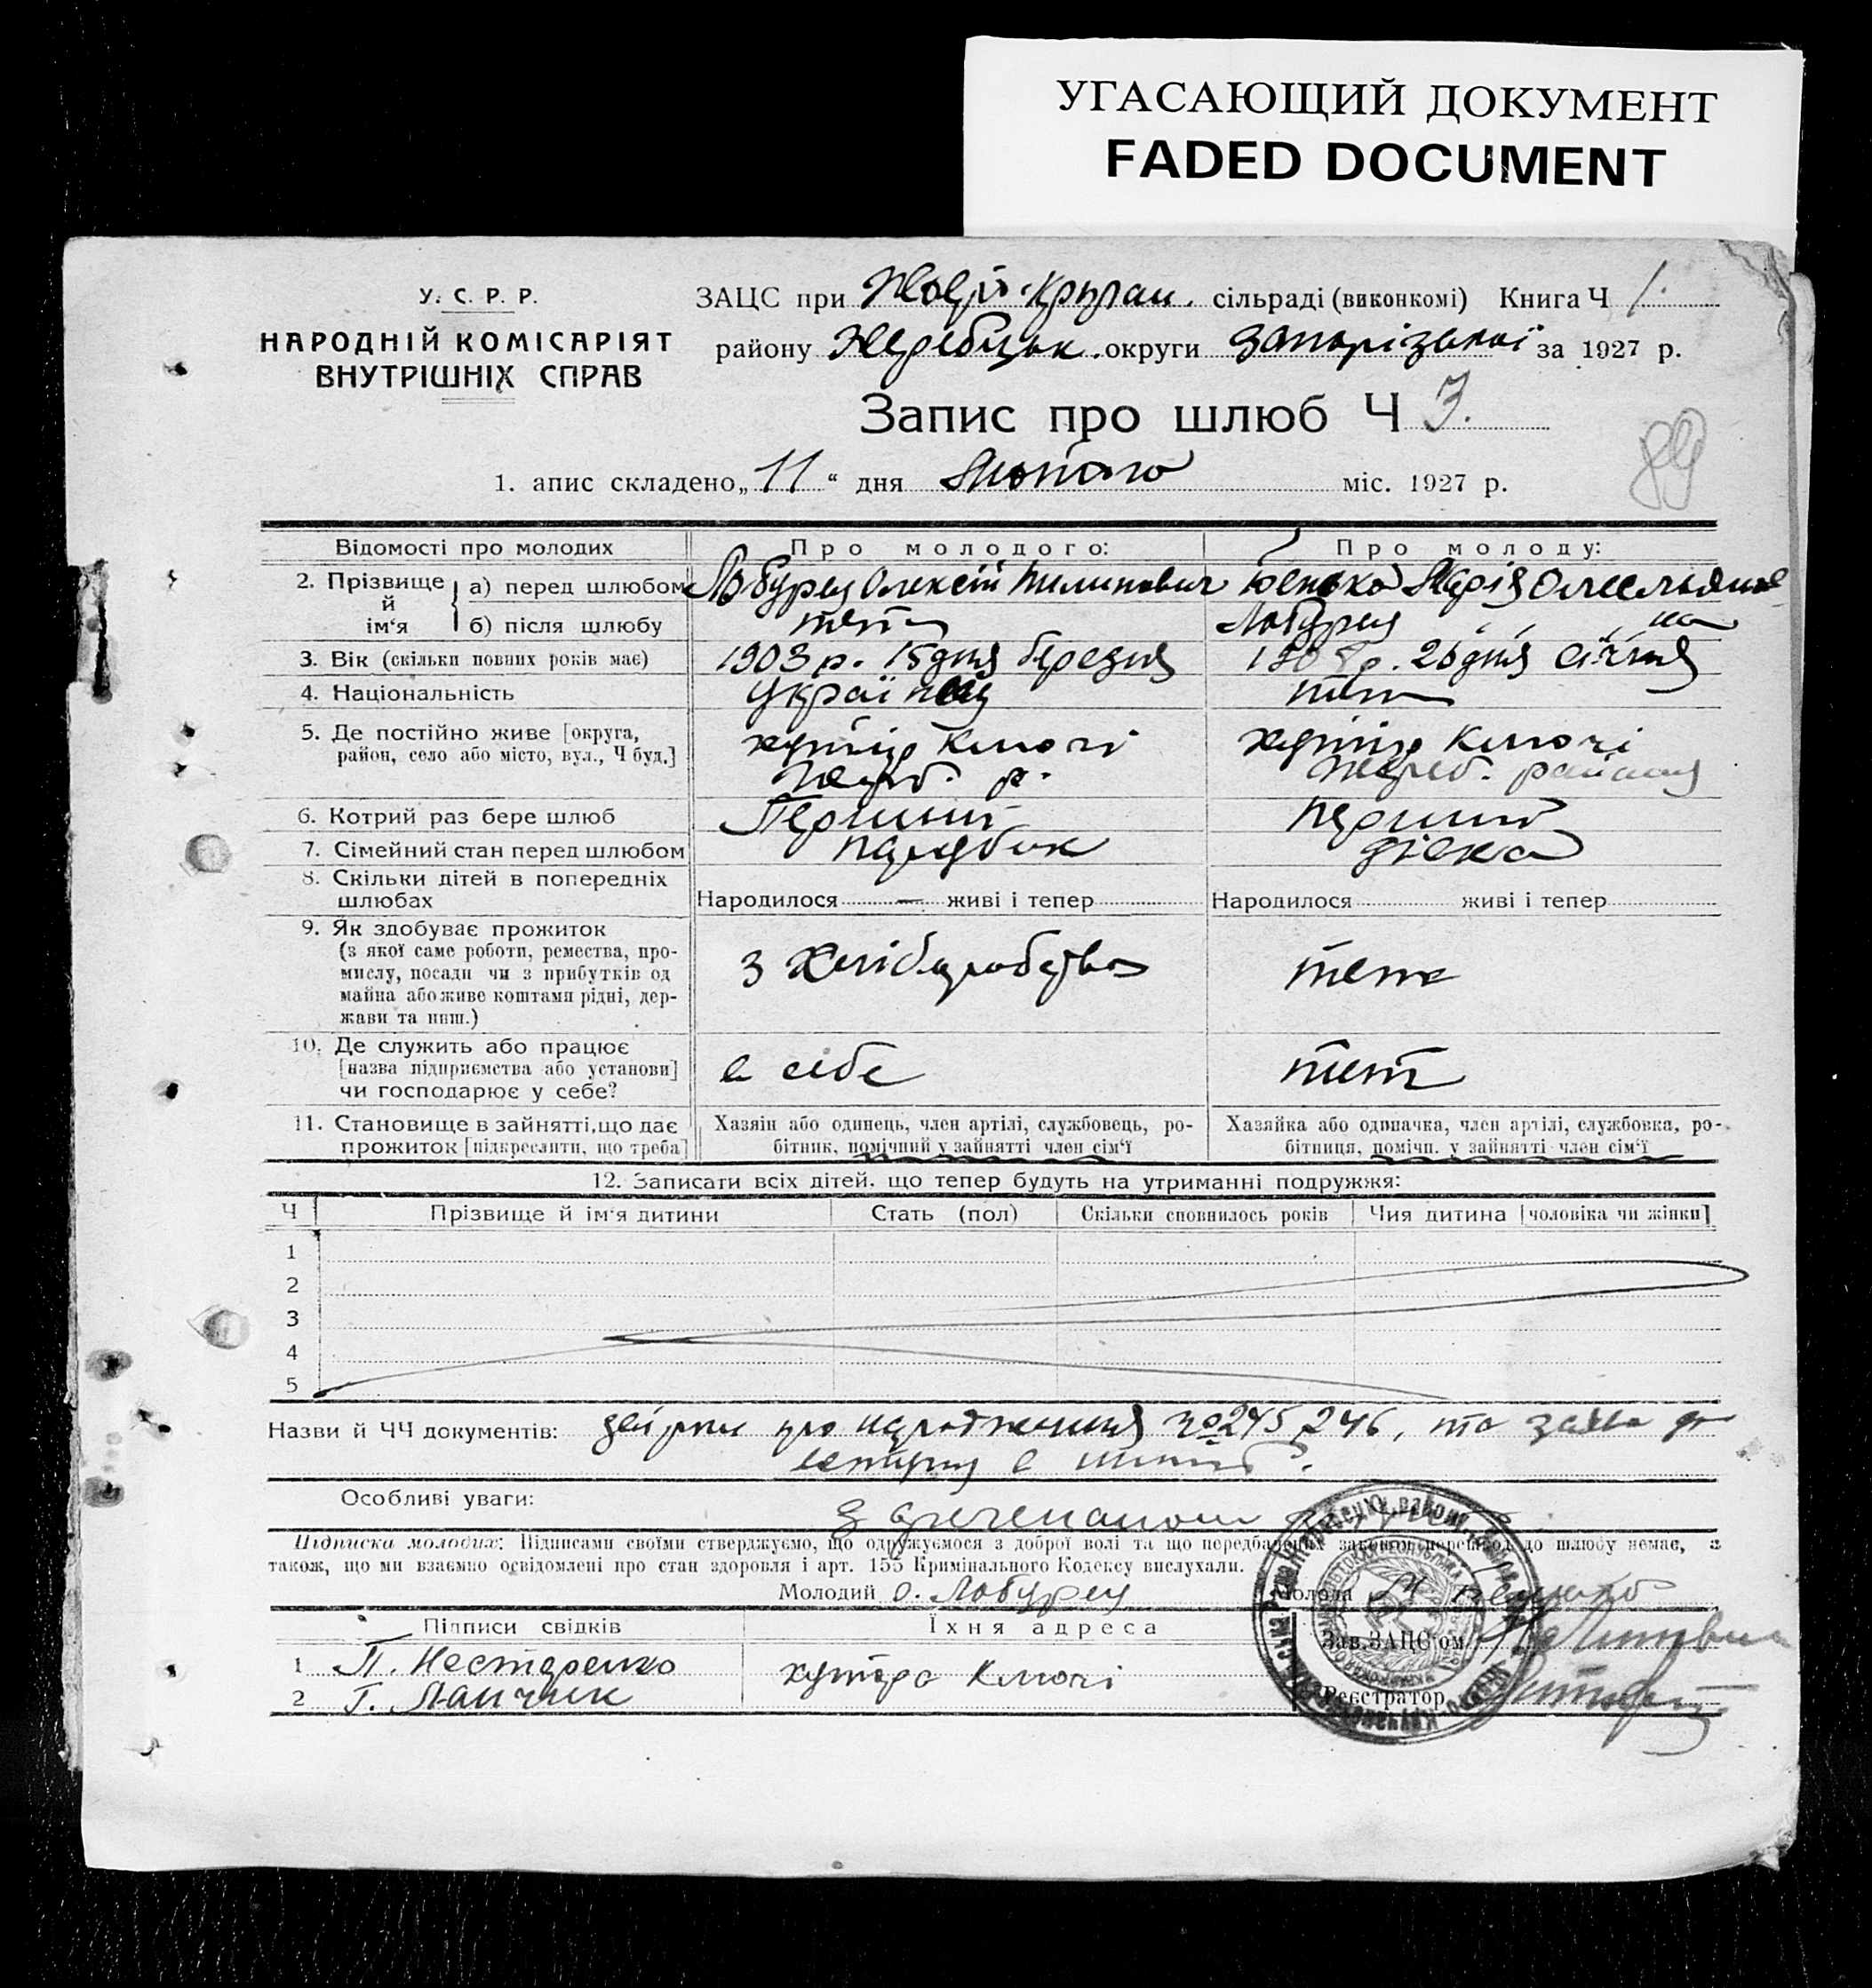 УГАСАЮЩИЙ ДОКУМЕНТ
FADED DOCUMENT
У. С. Р. Р.
НАРОДНІЙ КОМІСАРІЯТ
ВНУТРІШНІХ СПРАВ
ЗАЦС при сільраді (виконкомі) Книга Ч 1.
району Жеребецьк. округи Запорізької за 1927 р.
Запис про шлюб Ч 3.
89
1. апис складено „11“ дня Лютого міс. 1927 р.
Відомості про молодих Про молодого: Про молоду:
2. Прізвище й ім‘я а) перед шлюбом Лобурец Олексій Пилипович Марія
б) після шлюбу теж Лобурец
3. Вік (скільки повних років має) 1903 р. 15 дня березня 26 дня січня
4. Національність українец теж
5. Де постійно живе [округа, район, село або місто, вул., Ч буд.] хутір Ключі хутір Ключі
Жереб. р. Жереб. району
6. Котрий раз бере шлюб Перший перший
7. Сімейний стан перед шлюбом парубок дівка
8. Скільки дітей в попередніх шлюбах Народилося — живі і тепер Народилося живі і тепер
9. Як здобуває прожиток
(з якої саме роботи, ремества, про-
мислу, посади чи з прибутків од
майна або живе коштами рідні, дер-
жави та инш.)
з Хліборобства теж
10. Де служить або працює
[назва підприємства або установи]
чи господарює у себе?
в себе теж
11. Становище в зайнятті, що дає
прожиток [підкреслити, що треба]
Хазяїн або одинець, член артілі, службовець, ро-
бітник, помічний у зайнятті член сім‘ї
Хазяйка або одиначка, член артілі, службовка, ро-
бітниця, помічн. у зайнятті член сім‘ї
12. Записати всіх дітей, що тепер будуть на утриманні подружжя:
Ч Прізвище й ім‘я дитини Стать (пол) Скільки сповнилось років Чия дитина [чоловіка чи жінки]
1
2
3
4
5
Назви й ЧЧ документів: про народження №245, 246, та
Особливі уваги:
Підписка молодих: Підписами своїми стверджуємо, що одружуємося з доброї волі та що передбачених законом перешкод до шлюбу немає, а
також, що ми взаємно освідомлені про стан здоровля і арт. 155 Кримінального Кодексу вислухали.
Молодий О. Лобурец Молода
Підписи свідків Їхня адреса Зав. ЗАЦС‘ом
1 П. Нестеренко хутора Ключі
2 Г. Реєстратор